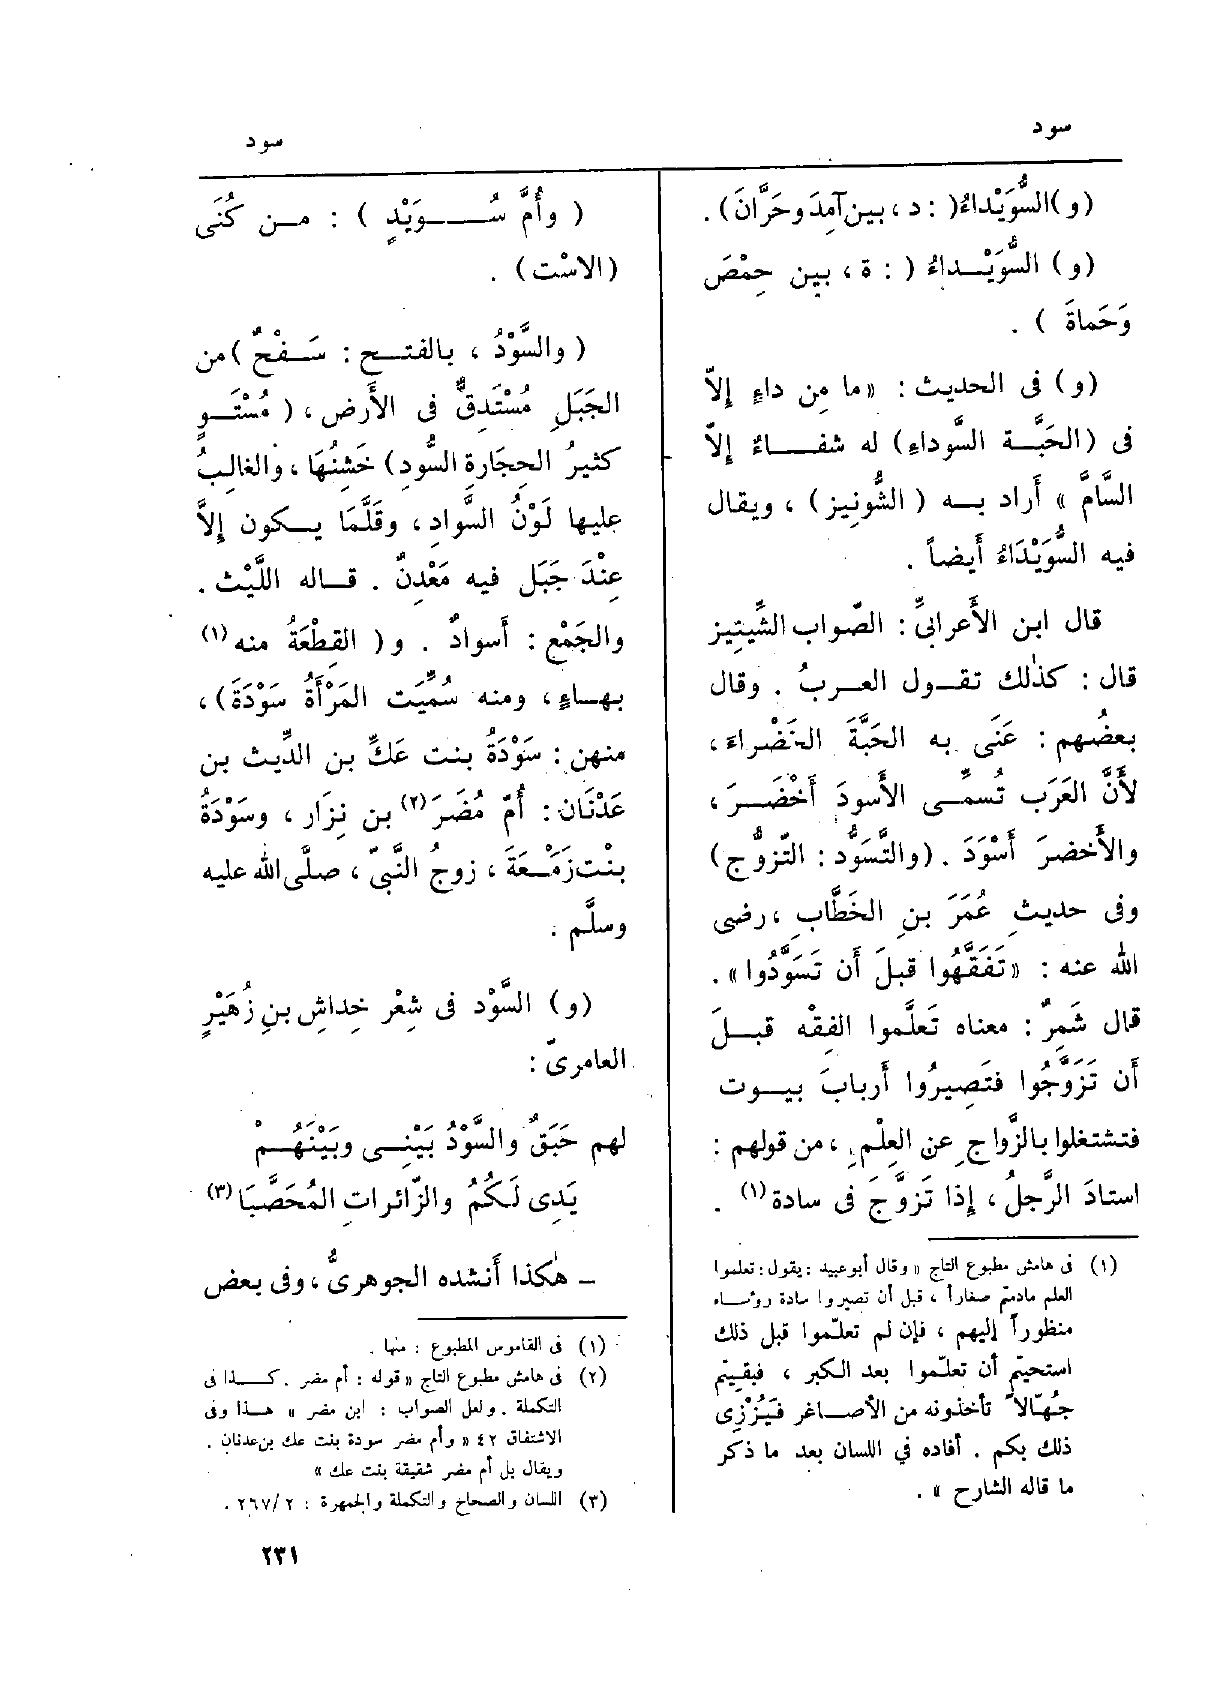 سود
سود
(و) السُّوَيْداءُ( : د ، بين آمِدَ وحَرَّانَ) .
(و) السُّوَيْـداءُ ( : ة ، بين حِمْصَ
وَحَماةَ ) .
(و) فى الحديث : « ما مِن داءٍ إِلاّ
فى (الحَبَّـة السَّوداءِ) له شفـاءٌ إِلاّ
السَّامَّ » أَراد بـه ( الشُّونِيز) ، ويقال
فيه السُّوَيْدَاءُ أَيضاً .
قال ابن الأَعرابىِّ : الصّواب الشِّينِيز
قال : كذٰلك تقـول العـربُ . وقال
بعضُهم : عَنَى به الحَبَّةَ الخَضْراءَ ،
لأَنَّ العَرَب تُسمِّـى الأَسودَ أَخْضَـرَ ،
والأَخضرَ أَسْوَدَ . (والتَّسَوُّد : التّزوُّج)
وفى حديثِ عُمَرَ بنِ الخَطَّابِ ، رضى
الله عنه : «تَفَقَّهُوا قبلَ أَن تَسَوَّدُوا» .
قال شَمِرٌ : معناه تَعلَّموا الفِقْه قبـلَ
أَن تَزَوَّجُوا فتَصِيرُوا أَربابَ بيـوت
فتشتغلوا بالزَّواجِ عن العِلْمِ ، من قولهم :
استادَ الرَّجلُ ، إِذا تَزوَّجَ فى سادة (١) .
(١) فى هامش مطبوع التاج « وقال أبو عبيد : يقول : تعلموا
العلم مادمتم صغاراً ، قبل أن تصيروا سادة رؤسـاء
منظوراً إليهم ، فإن لم تعلّموا قبل ذلك
استحيتم أن تعلّموا بعد الكبر ، فبقيتم
جُهّالاً تأخذونه من الأصـاغر فَيُزْرِى
ذلك بكم . أفاده في اللسان بعد ما ذكر
ما قاله الشارح » .
( وأُمُّ سُــوَيْدٍ ) : مـن كُنَى
(الاسْت) .
( والسَّوْدُ ، بالفتـح : سَـفْحٌ )من
الجَبَلِ مُسْتَدِقٌّ فى الأَرض ، ( مُسْتَـوٍ
كثيرُ الحِجَارةِ السُّودِ) خَشِنُهَا ، والغالِبُ
عليها لَوْنُ السَّوادِ ، وقَلَّمَا يـكون إِلاَّ
عِنْدَ جَبَل فيه مَعْدِنٌ . قـاله اللَّيْث .
والجَمْع : أَسوادٌ . و( القِطْعَةُ منه (١)
بهـاءٍ ، ومنه سُمِّيَت المَرْأَةُ سَوْدَةَ) ،
منهن : سَوْدَةُ بنت عَكِّ بن الدِّيث بن
عَدْنَان : أُمّ مُضَرَ (٢) بن نِزَار ، وسَوْدَةُ
بنْت زَمْـعَةَ ، زوجُ النَّبىّ ، صلَّى الله عليه
وسلَّم .
(و) السَّوْد فى شِعْر خِداشِ بنِ زُهَيْرٍ
العامرىّ :
لهم حَبَقٌ والسَّوْدُ بَيْنِـى وبَيْنَهُـمْ
يَدِى لَـكُمُ والزَّائراتِ المُحَصَّبَا (٣)
ـ هٰكذا أَنشده الجوهرىُّ ، وفى بعض
(١) فى القاموس المطبوع : منها .
(٢) فى هامش مطبوع التاج « قوله : أم مضر . كـذا فى
التكملة . ولعل الصواب : ابن مضر » هـذا وفى
الاشتقاق ٤٢ « وأم مضر سودة بنت عك بن عدنان .
ويقال بل أم مضر شقيقة بنت عك »
(٣) اللسان والصحاح والتكملة والجمهرة : ٢ /٢٦٧ .
٢٣١